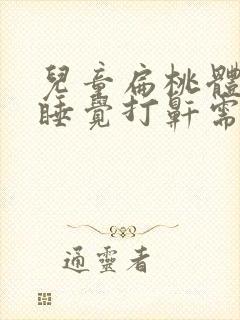 兒童扁桃體
睡覺打鼾需
通靈者